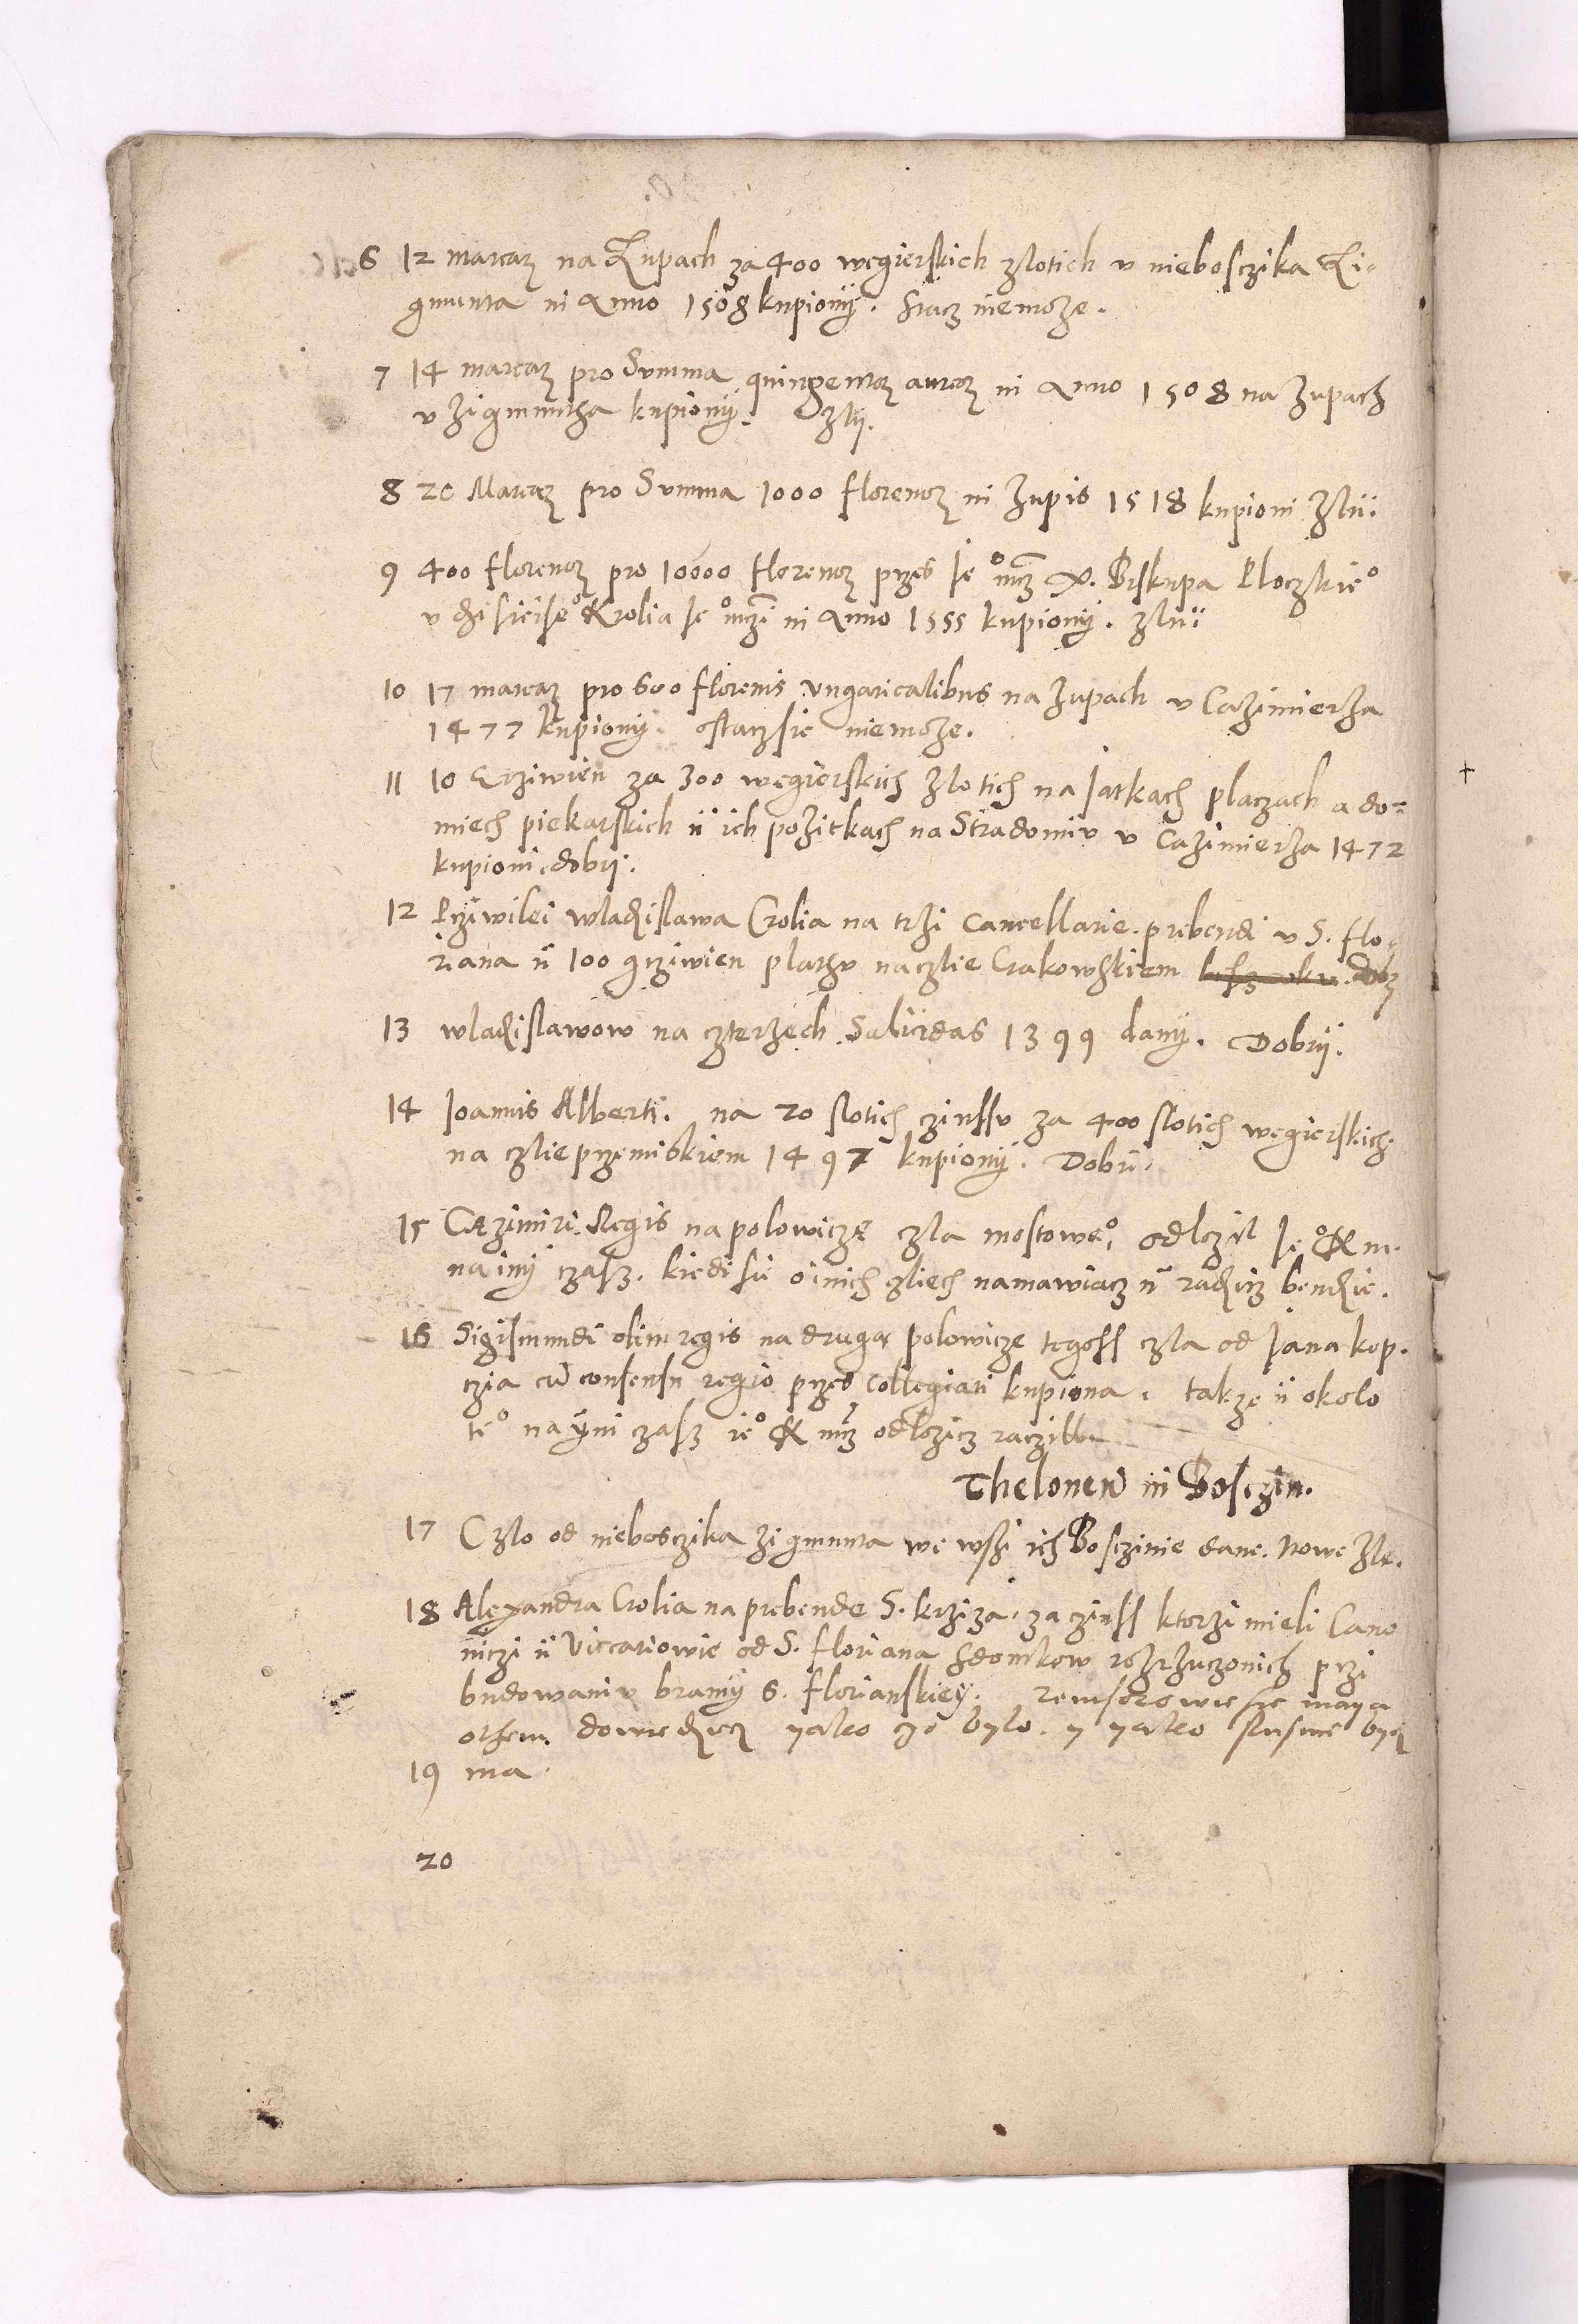 6 12 marcaꝝ na Zupach za 400 wegierskich zlotich v niebosczika Zi-
gmunta in Anno 1508 kupiony. Stacz niemoze.
7 14 marcaꝝ pro Summa quingentoꝝ aureoꝝ in Anno 1508 na Zupach
v Zigmuntha kupiony. Zly.
8 20 Marcaꝝ pro Summa 1000 florenoꝝ in Zupis 1518 kupioni Zlÿ.
9 400 florenoꝝ pro 10000 florenoꝝ przes Je° mcz X. Biskupa Ploczkie°
v dzisieise° Krolia Je° mczi in Anno 1555 kupiony. zlÿ.
10 17 marcaꝝ pro 600 florenis vngaricalibus na Zupach v Cazimierza
1477 kupiony. ostacz sie niemoze.
11 10 Grziwien za 300 wegierskich zlotich na Jatkach placzach a do=
miech piekarskich ÿ ich pozitkach na Stradomiv v Cazimierza 1472
kupioni. dobry.
12 Prziwilei wladislawa Crolia na trzi Cancellarie. prebendi v S. Flo-
riana ÿ 100 grziwien plathv naczlie Crakowskiem dobr
13 wladislawow na czterzech Saliirdas 1399 dany. Dobrÿ.
14 Joannis Alberti. na 20 slotich czinssv za 400 slotich wegierskich
na czlie przemiskiem 1497 kupiony. Dobrï.
15 Cazimiri Regis na polowicze czla mostowe°, odlozil Je° K m.
na iny czasz. kiedi sie o inich czliech namawiacz ÿ radzicz bendzie.
16 Sigismundi olim regis na druga polowicze tegoss czla od Jana kop.
czia cū consensu regio przes Collegiati kupiona. takze ÿ okolo
te° na ÿni czasz ie° K mcz odlozicz raczill
Theloneū in Bosczin.
17 Czlo od niebosczika Zigmunta we wszi ich Bosczinie dane. Nowe Zle.
18 Alexandra Crolia na prebende S. krziza. za czinss ktorzi mieli Cano
niczi ÿ Viccariowie od S. Floriana sdomkow rozrzuczonich przi
budowaniv bramy S. Florianskiey. sie maya
othem dowiedziec yako ze bylo. y yako slusnie bydz
19 ma.
20